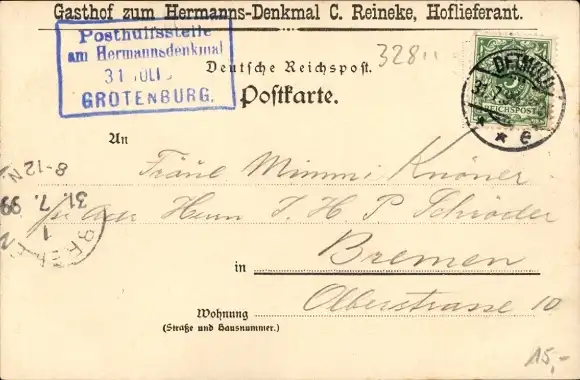 Gasthof zum Hermanns-Denkmal C. Reineke, Hoflieferant.
Posthülfsstelle
am Hermannsdenkmal
31 JULI
GROTENBURG.
328
DETMOLD
REICHSPOST
* * e
Deutsche Reichspost.
Postkarte.
An
Fräul Mimmi Knöner
Herrn J. H P Schröder
in Bremen
Wohnung Olberstrasse 10
(Straße und Hausnummer.)
BREMEN
1
31. 7. 99
8-12 N
15,-